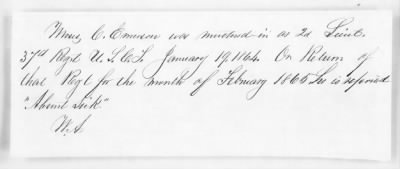 C. Emerson was mustered in as 2d Lieut.
37th Regt U.S.C.T. January 19, 1864. On Return of
that Regt for the month of February 1865 he is reported
"Absent sick"